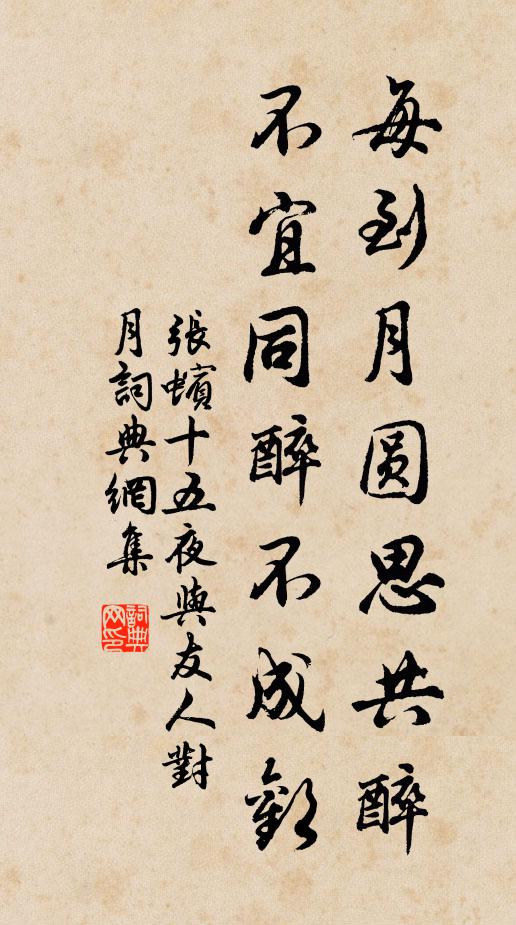 每到月圆思共醉
不宜同醉不成歡
張蠙十五夜與友人對
月詞典網集
詞典
网印